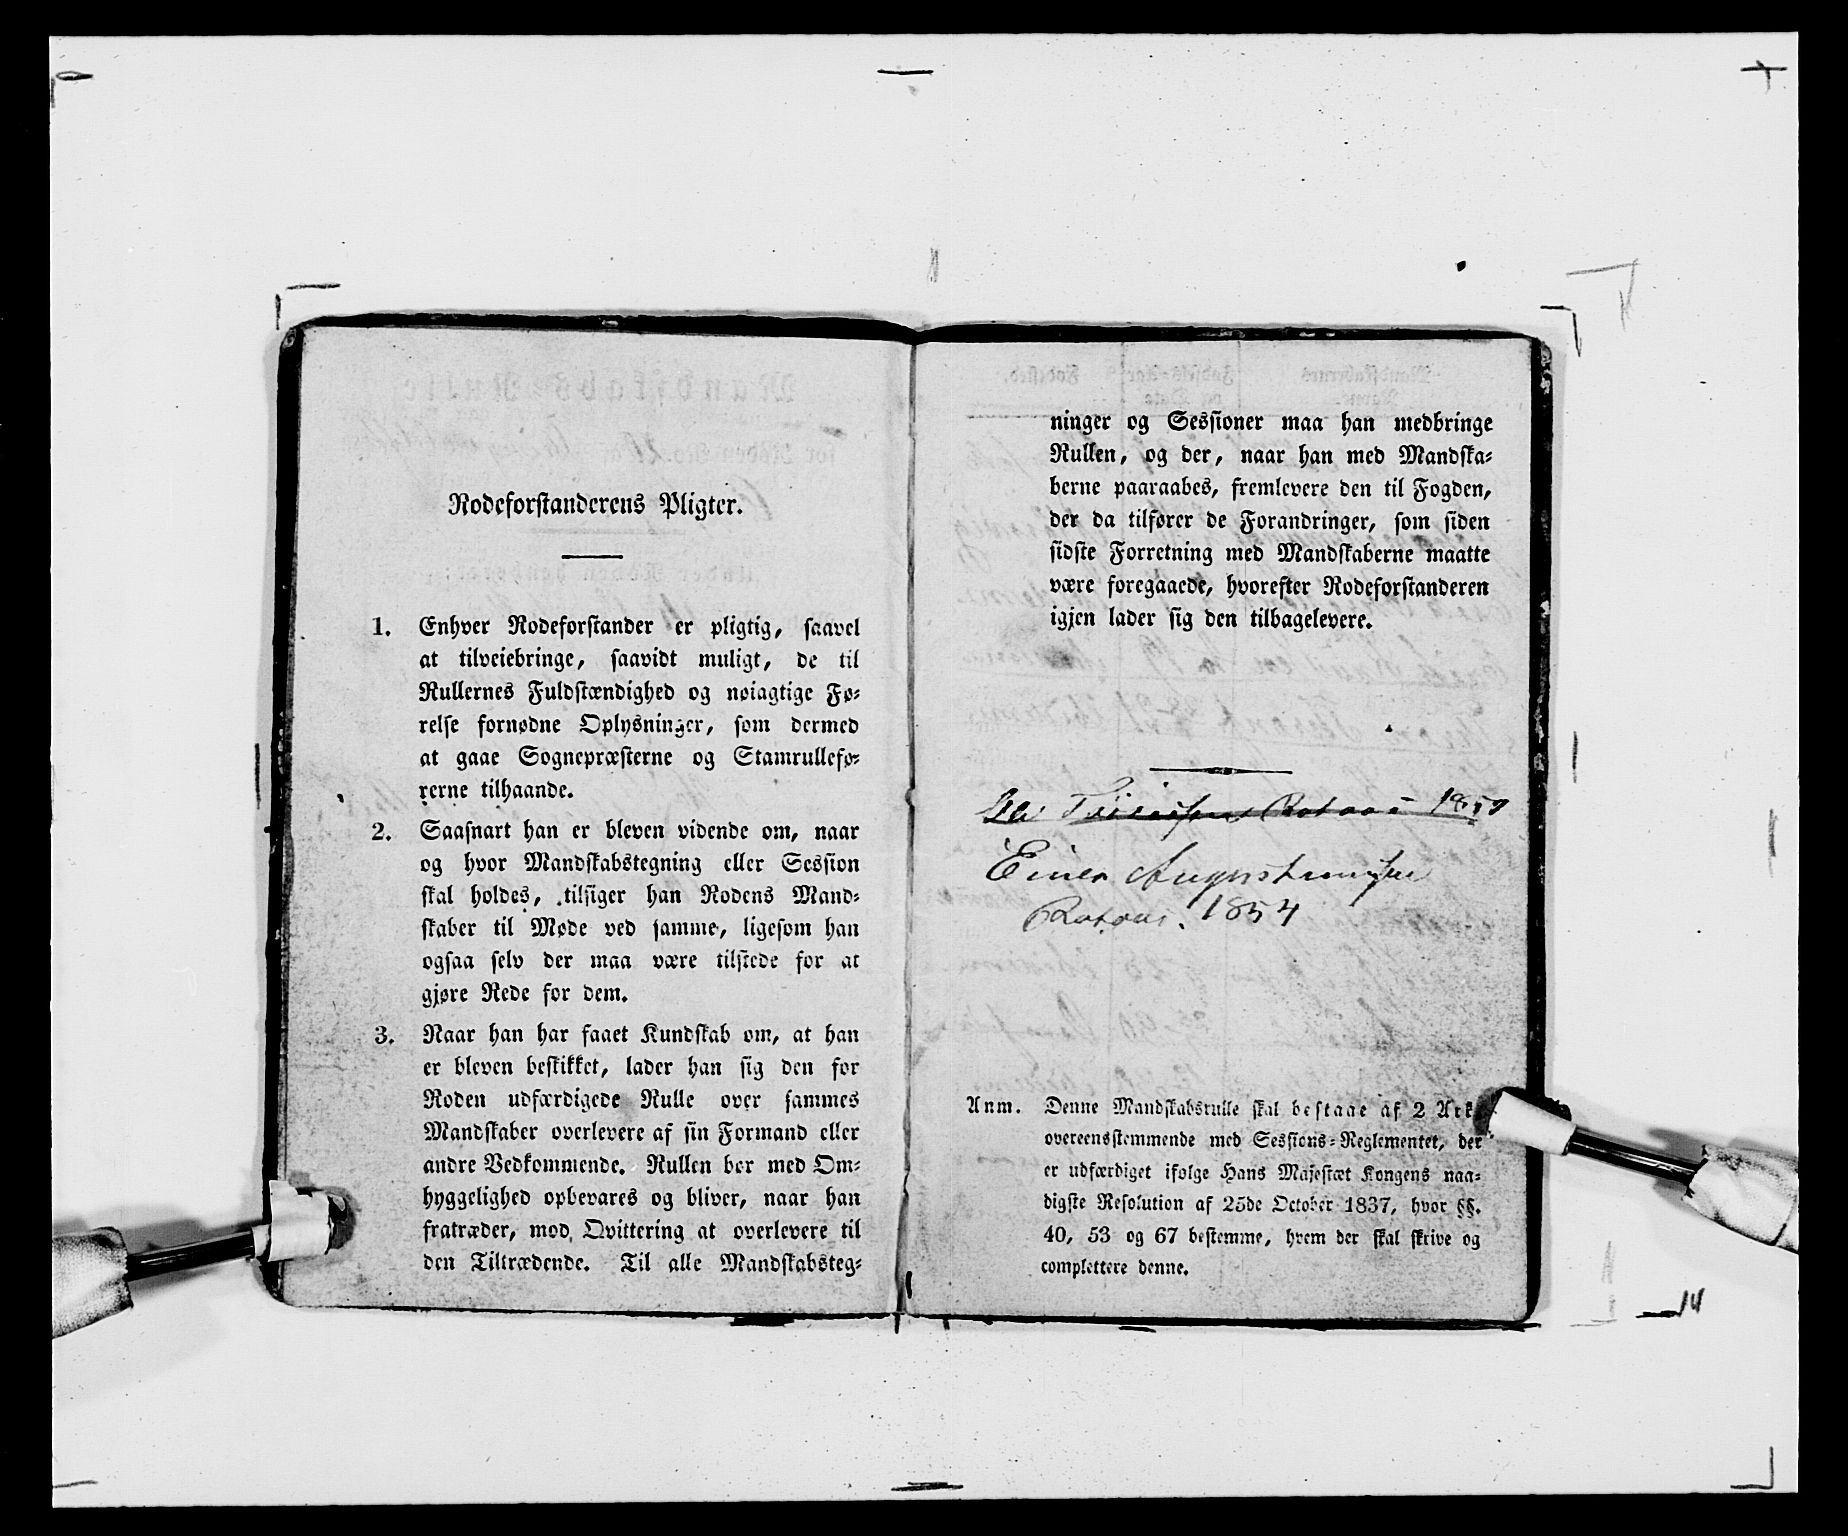 Rodeforstanderens Pligter.
1. Enhver Rodeforstander er pligtig, saavel
at tilveiebringe, saavidt muligt, de til
Rullernes Fuldstændighed og nøiagtige Fø-
relse fornødne Oplysninger, som dermed
at gaae Sognepræsterne og Stamrullefø-
rerne tilhaande.
2. Saasnart han er bleven vidende om, naar
og hvor Mandskabstegning eller Session
skal holdes, tilsiger han Rodens Mand-
skaber til Møde ved samme, ligesom han
ogsaa selv der maa være tilstede for at
gjøre Rede for dem.
3. Naar han har faaet Kundskab om, at han
er bleven beskikket, lader han sig den for
Roden udfærdigede Rulle over sammes
Mandskaber overlevere af sin Formand eller
andre Vedkommende. Rullen bør med Om-
hyggelighed opbevares og bliver, naar han
fratræder, mod Qvittering at overlevere til
den Tiltrædende. Til alle Mandskabsteg-
ninger og Sessioner maa han medbringe
Rullen, og der, naar han med Mandska-
berne paaraabes, fremlevere den til Fogden,
der da tilfører de Forandringer, som siden
sidste Forretning med Mandskaberne maatte
være foregaaede, hvorefter Rodeforstanderen
igjen lader sig den tilbagelevere.
Einer
1854
Anm. Denne Mandskabsrulle skal bestaae af 2 Ark
overeensstemmende med Sessions-Reglementet, der
er udfærdiget ifølge Hans Majestæt Kongens naa-
digste Resolution af 25de October 1837, hvor §§.
40, 53 og 67 bestemme, hvem der skal skrive og
complettere denne.
14